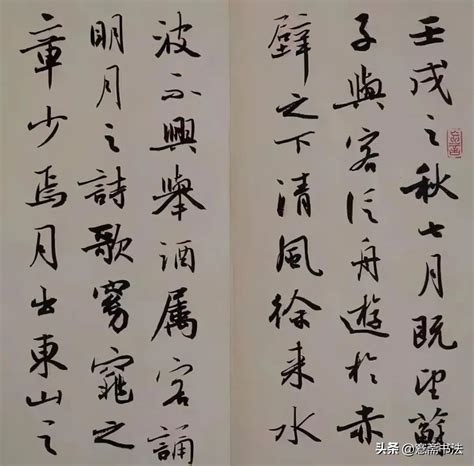 壬戌之秋七月既望蘇
子與客泛舟遊於赤
壁之下清風徐来水
波不興舉酒属客誦
明月之詩歌窈窕之
章少焉月出東山之
头条 @意斋书法